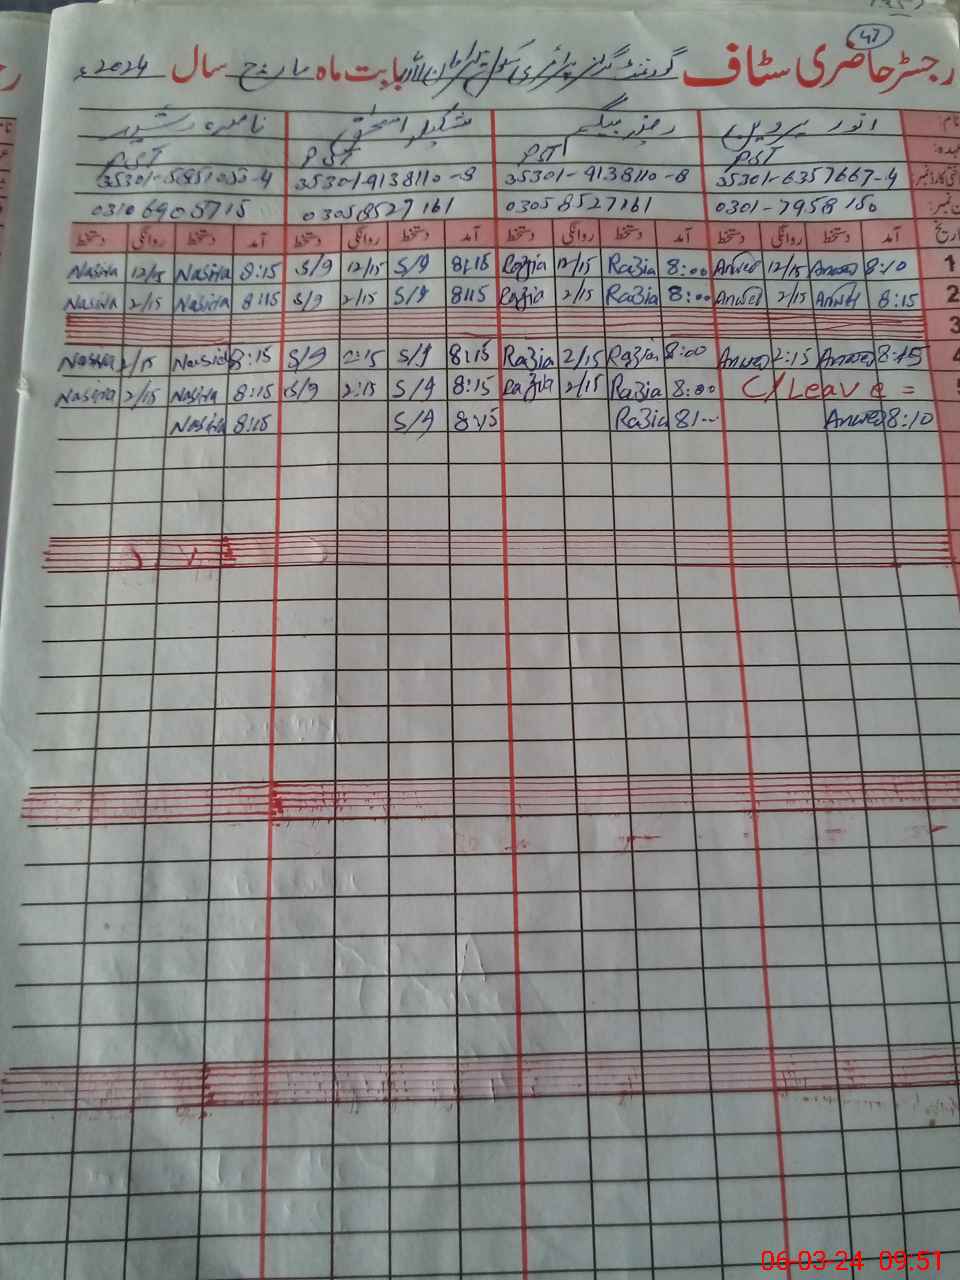 47
رجسٹر حاضری سٹاف گورنمنٹ گرلز پرائمری سکول بابت ماہ مارچ سال 2024ء
نام: انور پروین رضیہ بیگم شکیلہ اسحق ناصرہ رشید
عہدہ: PST PST PST PST
35301-6357667-4 35301-9138110-8 35301-9138110-8
0301-7958150 03058527161 03058527161 03106905715
تاریخ آمد دستخط روانگی دستخط آمد دستخط روانگی دستخط آمد دستخط روانگی دستخط آمد دستخط روانگی دستخط
1 8:10 Anwer 12/15 Anwer 8:00 Razia 12/15 Razia 8:15 S/9 12/15 S/9 8:15 Nasira 12/15 Nasira
2 8:15 Anwer 2/15 Anwer 8:00 Razia 2/15 Razia 8:15 S/9 2/15 S/9 8:15 Nasira 2/15 Nasira
3
4 8:15 Anwer 2:15 Anwer 8:00 Razia 2/15 Razia 8:15 S/9 2:15 S/9 8:15 Nasira 2/15 Nasira
5 C/Leave = 8:00 Razia 2/15 Razia 8:15 S/9 2:15 S/9 8:15 Nasira 2/15 Nasira
8:10 Anwer Razia 8:15 S/9 8:15 Nasira
06-03-24 09:51